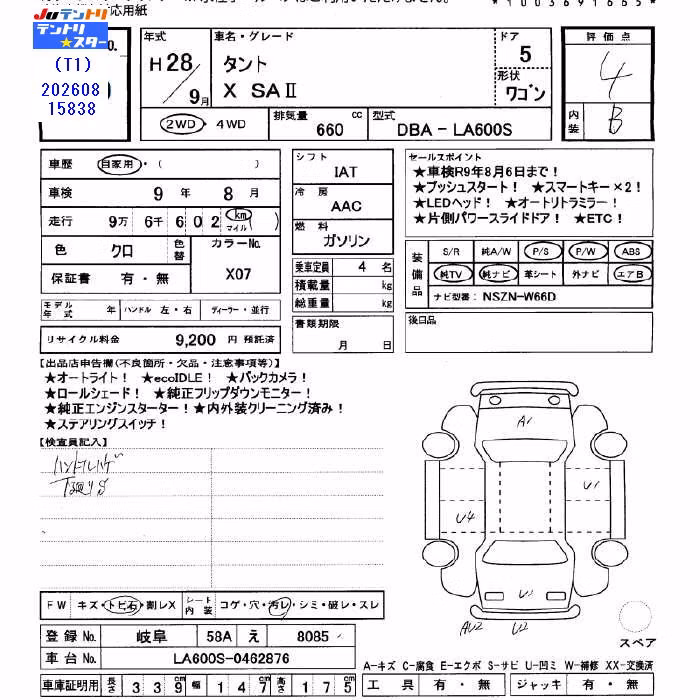 応用紙
*1003691665*
Juテントリ
テントリ
★スター
(T1)
202608
15838
No.
年式 H28/9月
車名・グレード
タント
X SAⅡ
ドア 5
形状 ワゴン
評価点 4
内装 B
2WD・4WD
排気量 660 cc
型式 DBA-LA600S
車歴 自家用・( )
車検 9年 8月
走行 9万 6千 6 0 2 km マイル
色 クロ 色替 カラーNo. X07
保証書 有・無
モデル年式 年 ハンドル 左・右 ディーラー・並行
リサイクル料金 9,200 円 預託済
シフト IAT
冷房 AAC
燃料 ガソリン
乗車定員 4 名
積載量 kg
総重量 kg
書類期限 月 日
セールスポイント
★車検R9年8月6日まで！
★プッシュスタート！ ★スマートキー×2！
★LEDヘッド！ ★オートリトラミラー！
★片側パワースライドドア！ ★ETC！
装備品 S/R 純A/W P/S P/W ABS
純TV 純ナビ 革シート 外ナビ エアB
ナビ型番: NSZN-W66D
後日品
【出品店申告欄(不良箇所・欠品・注意事項等)】
★オートライト！ ★ecoIDLE！ ★バックカメラ！
★ロールシェード！ ★純正フリップダウンモニター！
★純正エンジンスターター！★内外装クリーニング済み！
★ステアリングスイッチ！
【検査員記入】
ハンドルハゲ
下廻りS
A1
U1
U4
U2
FW キズ・トビ石・割レX シート内装 コゲ・穴・汚レ・シミ・破レ・スレ
スペア
登録No. 岐阜 58A え 8085
車台No. LA600S-0462876
A-キズ C-腐食 E-エクボ S-サビ U-凹ミ W-補修 XX-交換済
車庫証明用 長さ 339cm 幅 147cm 高さ 175cm
工具 有・無 ジャッキ 有・無